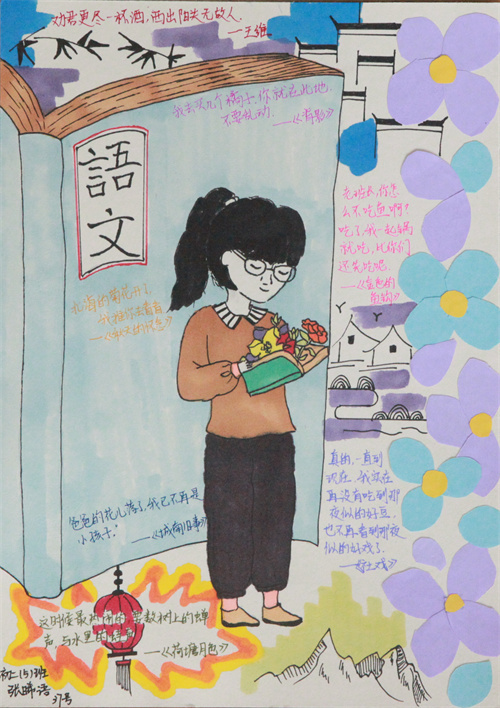 劝君更尽一杯酒,西出阳关无故人。
——王维
我去买几个橘子,你就在此地,
不要走动。——《背影》
語
文
老班长,你怎
么不吃鱼啊?
吃了,我一起锅
就吃,比你们
还先吃呢。
——《金色的
鱼钩》
北海的菊花开了,
我推你去看看
——《秋天的怀念》
爸爸的花儿落了,我已不再是
小孩子。
——《城南旧事》
真的,一直到
现在,我实在
再没有吃到那
夜似的好豆,
也不再看到那夜
似的好戏了。
——《社戏》
这时候最热闹的,要数树上的蝉
声,与水里的蛙声
——《荷塘月色》
初二(5)班
37号